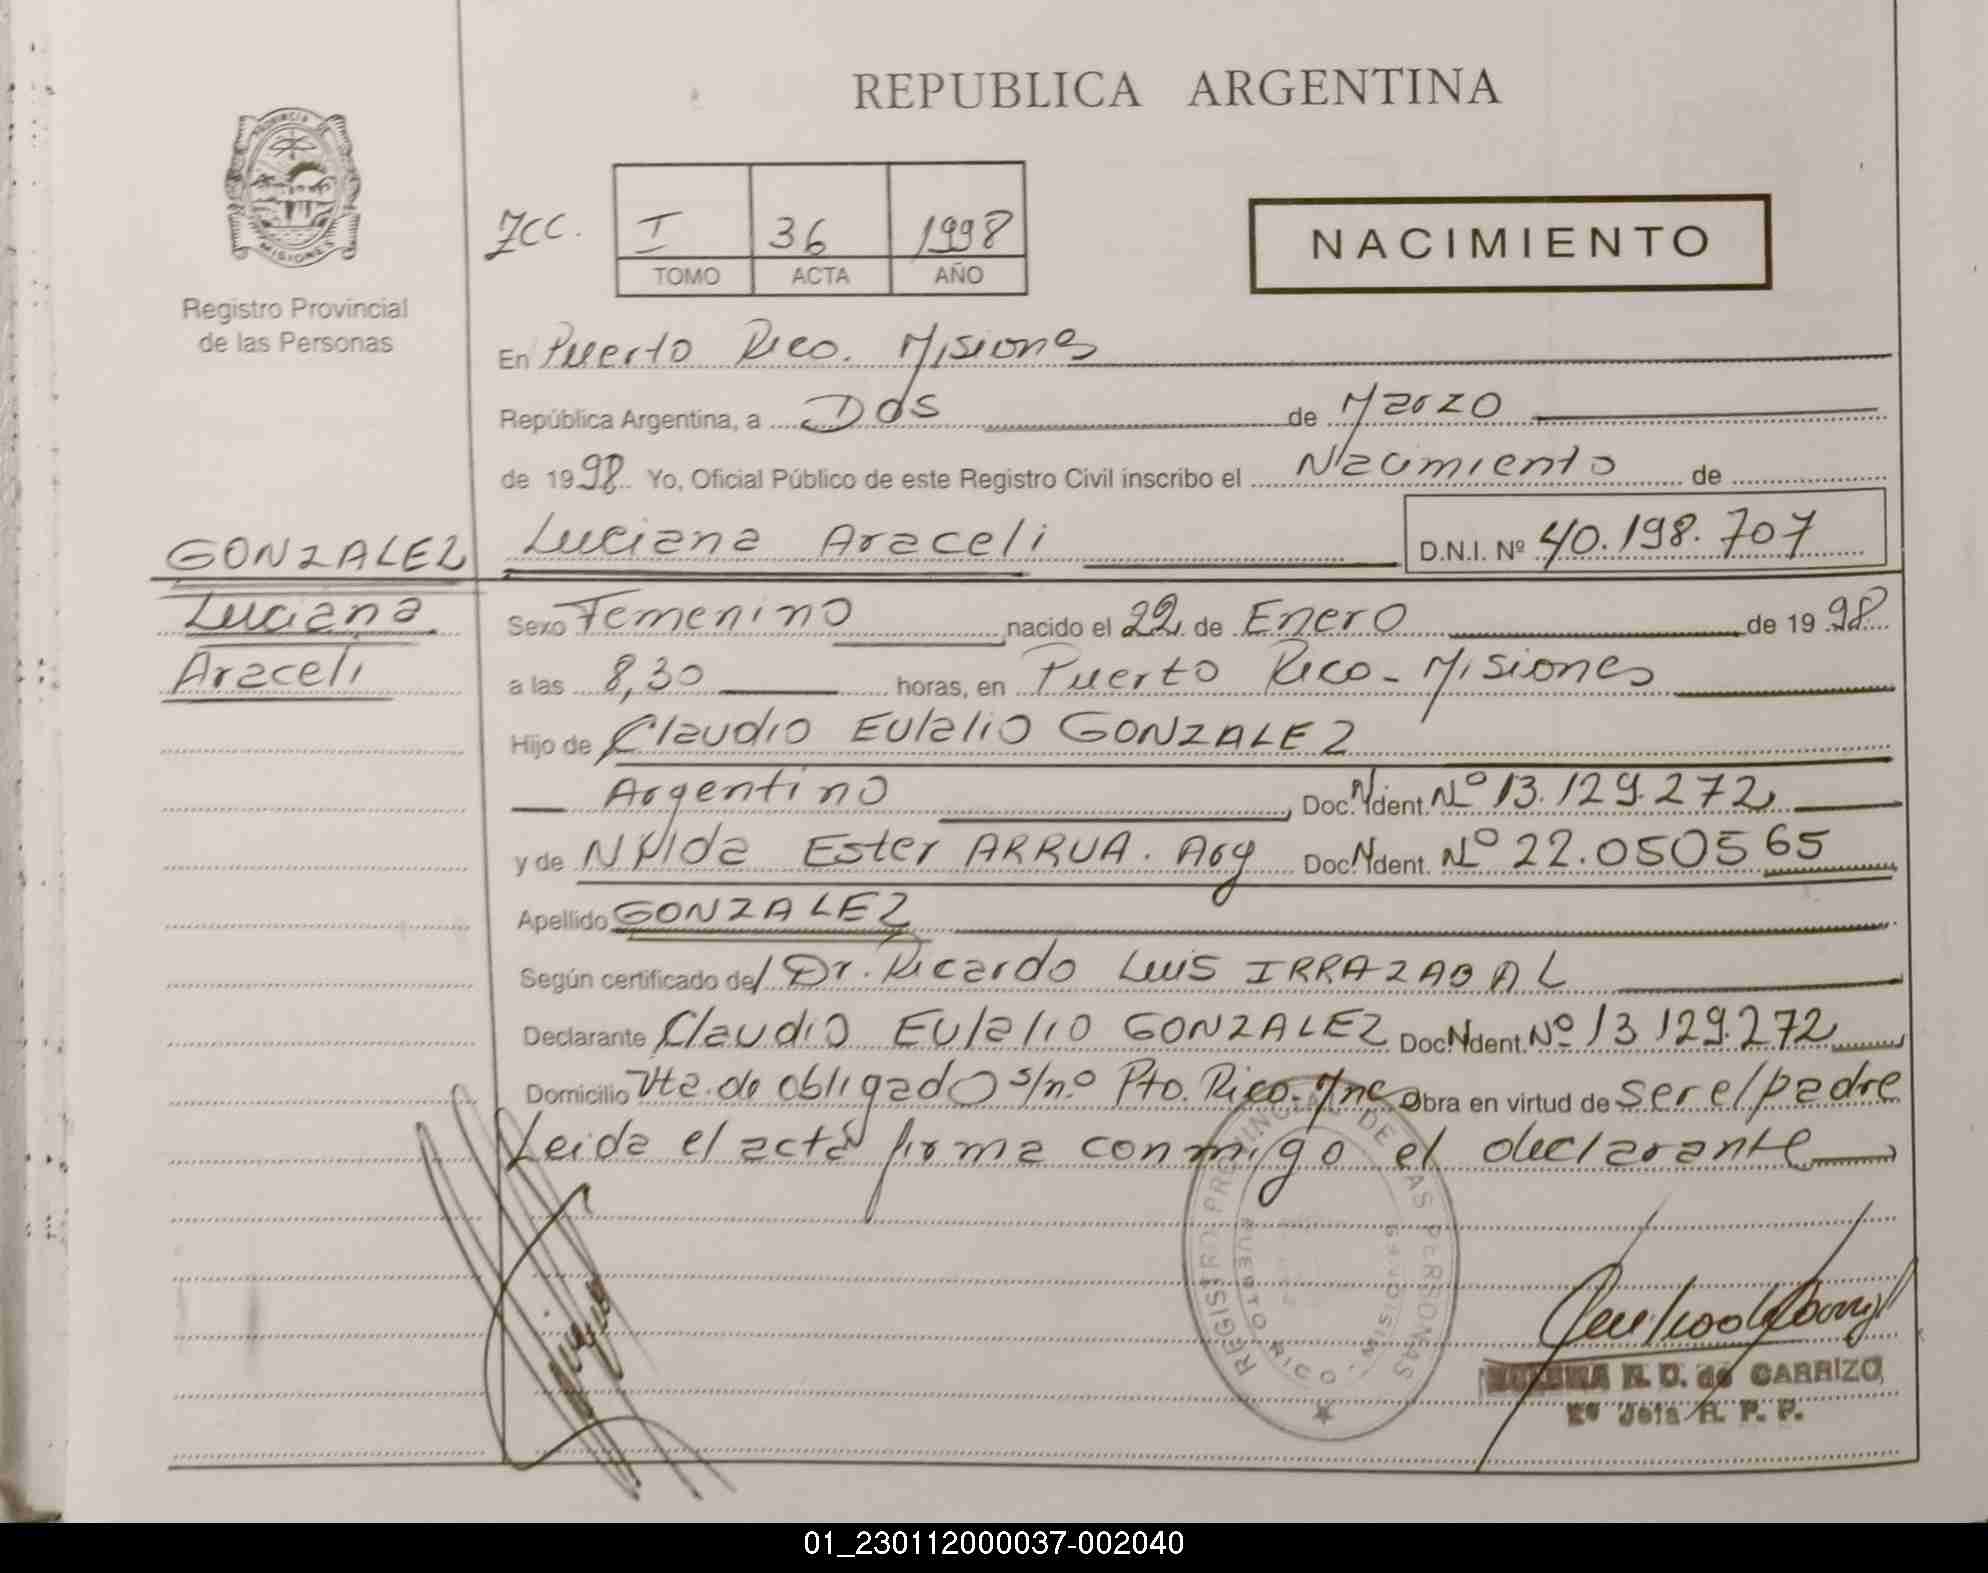 REPUBLICA ARGENTINA
PROVINCIA DE
MISIONES
Registro Provincial
de las Personas
I 36 1998
TOMO ACTA AÑO
NACIMIENTO
En Puerto Rico. Misiones
República Argentina, a Dos de Marzo
de 1998 Yo, Oficial Público de este Registro Civil inscribo el Nacimiento de
GONZALEZ Luciana Araceli D.N.I. Nº 40.198.707
Luciana
Araceli
Sexo Femenino nacido el 22 de Enero de 1998
a las 8,30 horas, en Puerto Rico - Misiones
Hijo de Claudio Eulalio GONZALEZ
Argentino, Doc. Ident. Nº 13.129.272
y de Ester ARRUA. Arg Doc. Ident. Nº 22.050565
Apellido GONZALEZ
Según certificado del Dr. Ricardo Luis IRRAZABAL
Declarante Claudio Eulalio GONZALEZ Doc. Ident. Nº 13 129.272
Domicilio Vta. de obligado s/nº Pto. Rico. Mnes Obra en virtud de ser el padre
Leida el acta firma conmigo el declarante
REGISTRO PROVINCIAL DE LAS PERSONAS
PUERTO RICO - MISIONES
R. D. de CARRIZO
Jefa R. P. P.
01_230112000037-002040